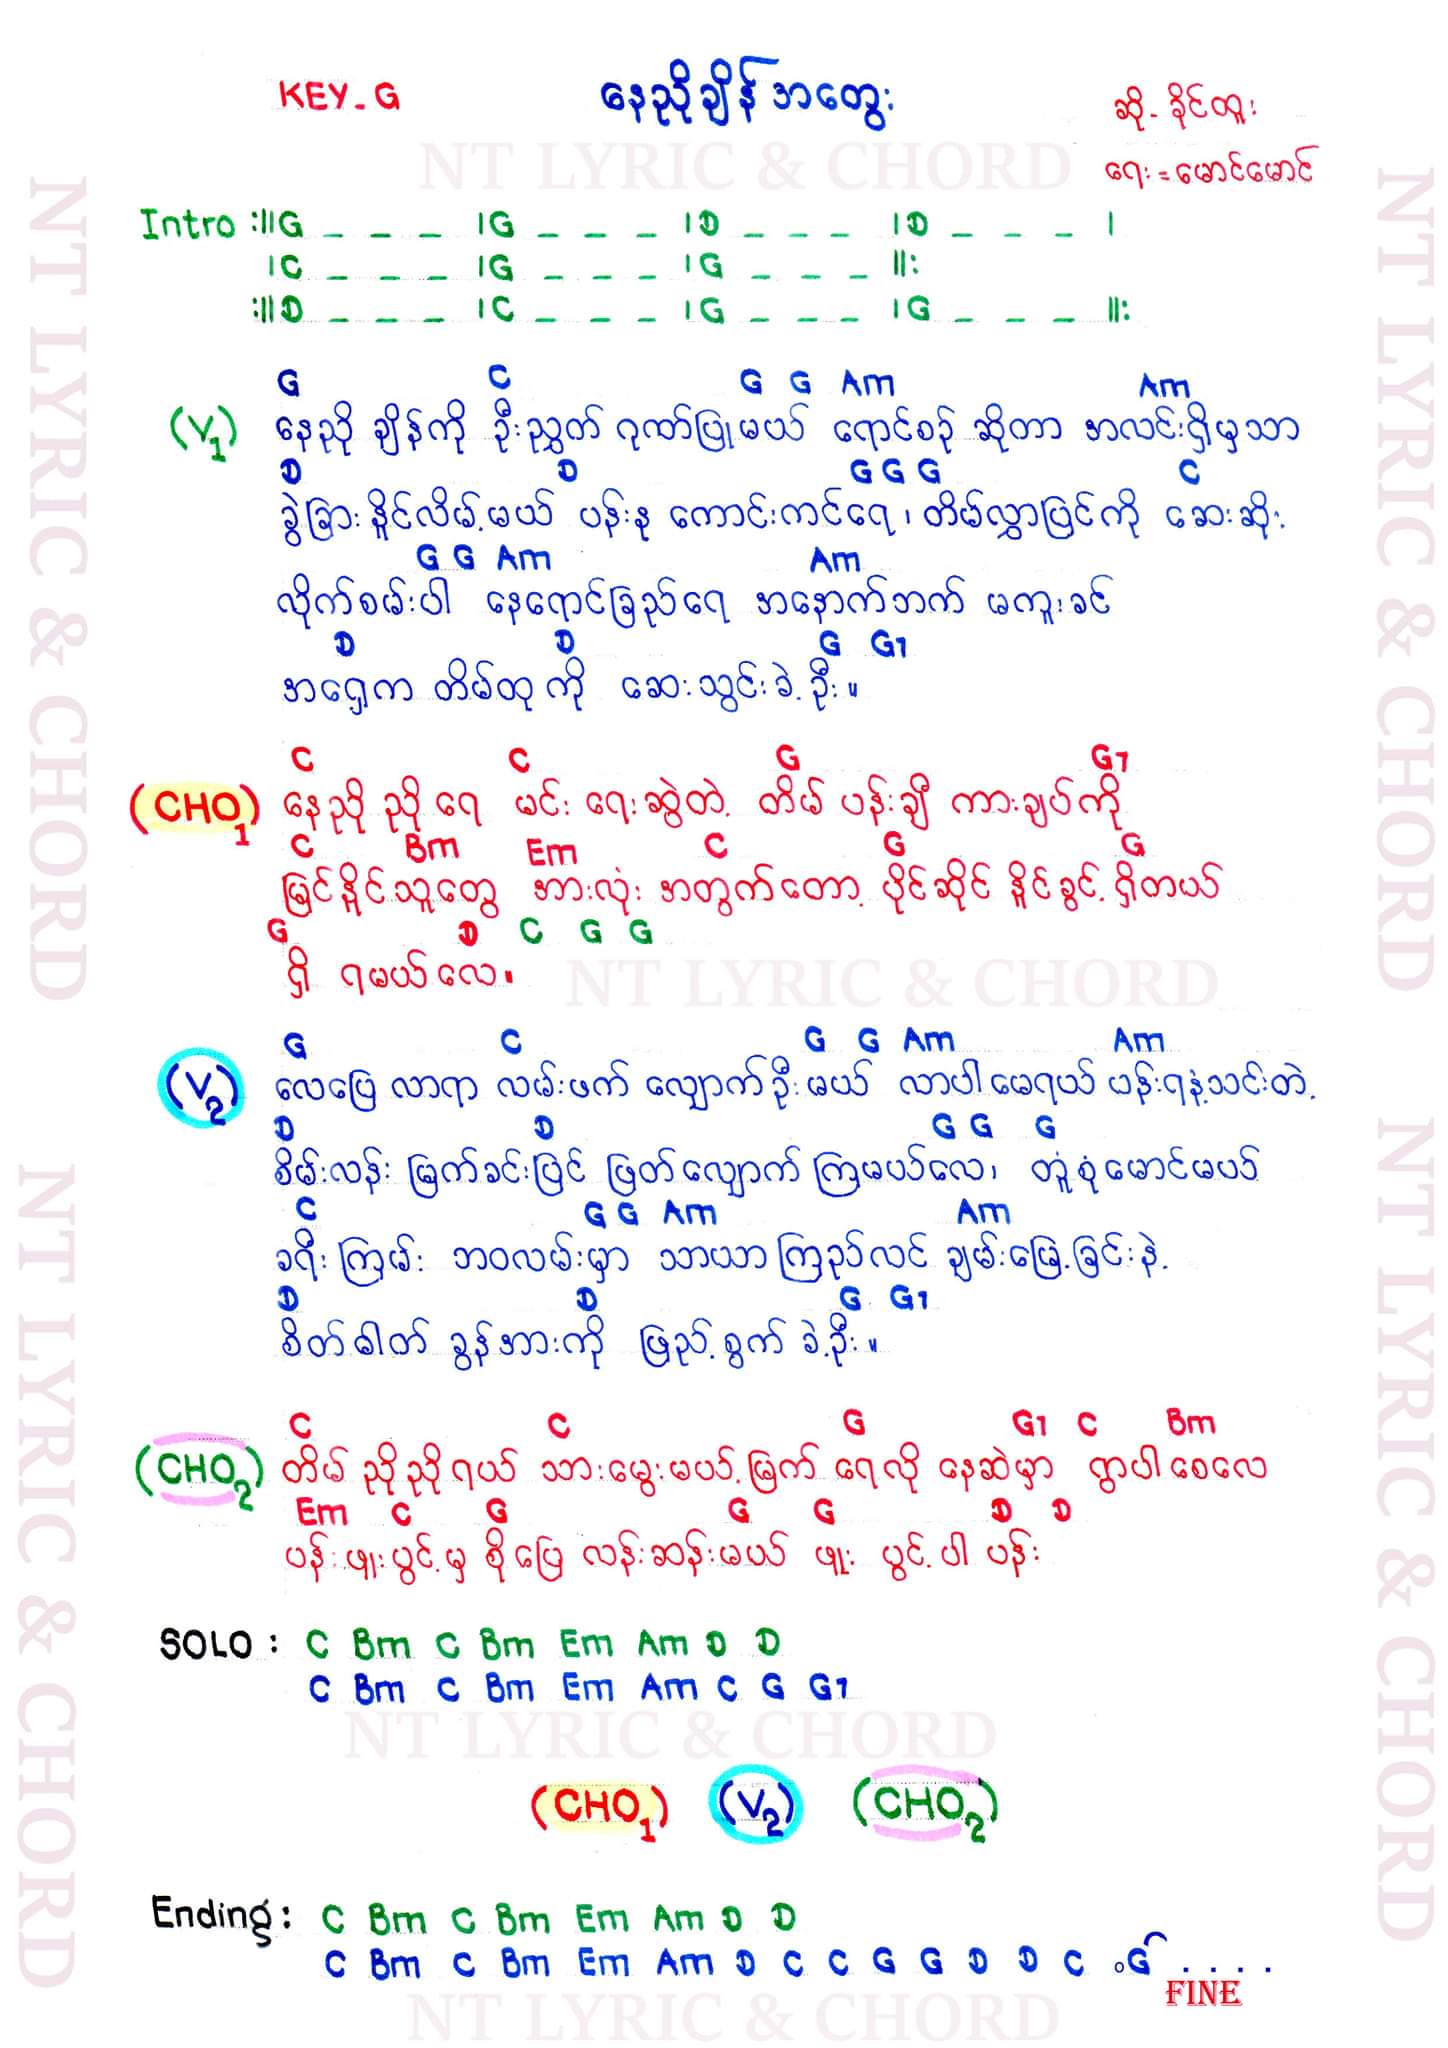 KEY-G
နေညိုချိန်အတွေး
ဆို- ခိုင်ထူး
ရေး = မောင်မောင်
NT LYRIC & CHORD
Intro :||G _ _ _ |G _ _ _ |D _ _ _ |D _ _ _ |
|C _ _ _ |G _ _ _ |G _ _ _ ||:
:||D _ _ _ |C _ _ _ |G _ _ _ |G _ _ _ ||:
G C G G Am Am
(V1) နေညို ချိန်ကို ဦးညွှတ် ဂုဏ်ပြုမယ် ရောင်စဉ် ဆိုတာ အလင်းရှိမှသာ
D D G G G C
ခွဲခြား နိုင်လိမ့်မယ် ပန်းနု ကောင်းကင်ရေ၊ တိမ်လွှာပြင်ကို ဆေးဆိုး
G G Am Am
လိုက်စမ်းပါ နေရောင်ခြည်ရေ အနောက်ဘက် မကူးခင်
D D G G7
အရှေ့က တိမ်ထုကို ဆေးသွင်းခဲ့ဦး။
C C G G7
(CHO1) နေညို ညိုရေ မင်း ရေးဆွဲတဲ့ တိမ် ပန်းချီ ကားချပ်ကို
C Bm Em C G G
မြင်နိုင်သူတွေ အားလုံး အတွက်တော့ ပိုင်ဆိုင် နိုင်ခွင့် ရှိတယ်
G D C G G
ရှိ ရမယ်လေ။
NT LYRIC & CHORD
G C G G Am Am
(V2) လေပြေ လာရာ လမ်းဖက် လျှောက်ဦးမယ် လာပါမေရယ် ပန်းရနံ့သင်းတဲ့
D D G G G
စိမ်းလန်း မြက်ခင်းပြင် ဖြတ်လျှောက် ကြမယ်လေ၊ တူစုံမောင်မယ်
C G G Am Am
ခရီးကြမ်း ဘဝလမ်းမှာ သာယာကြည်လင် ချမ်းမြေ့ခြင်းနဲ့
D D G G7
စိတ်ဓါတ် ခွန်အားကို ဖြည့်စွက် ခဲ့ဦး။
C C G G7 C Bm
(CHO2) တိမ် ညိုညိုရယ် သားမွေးမယ့်မြက် ရေလို နေဆဲမှာ ရွာပါစေလေ
Em C G G G D D
ပန်းဖူးပွင့်မှ စိုပြေ လန်းဆန်းမယ် ဖူး ပွင့်ပါ ပန်း
SOLO : C Bm C Bm Em Am D D
C Bm C Bm Em Am C G G7
NT LYRIC & CHORD
(CHO1) (V2) (CHO2)
Ending : C Bm C Bm Em Am D D
C Bm C Bm Em Am D C C G G D D C G . . . .
FINE
NT LYRIC & CHORD
NT LYRIC & CHORD
NT LYRIC & CHORD
NT LYRIC & CHORD
NT LYRIC & CHORD